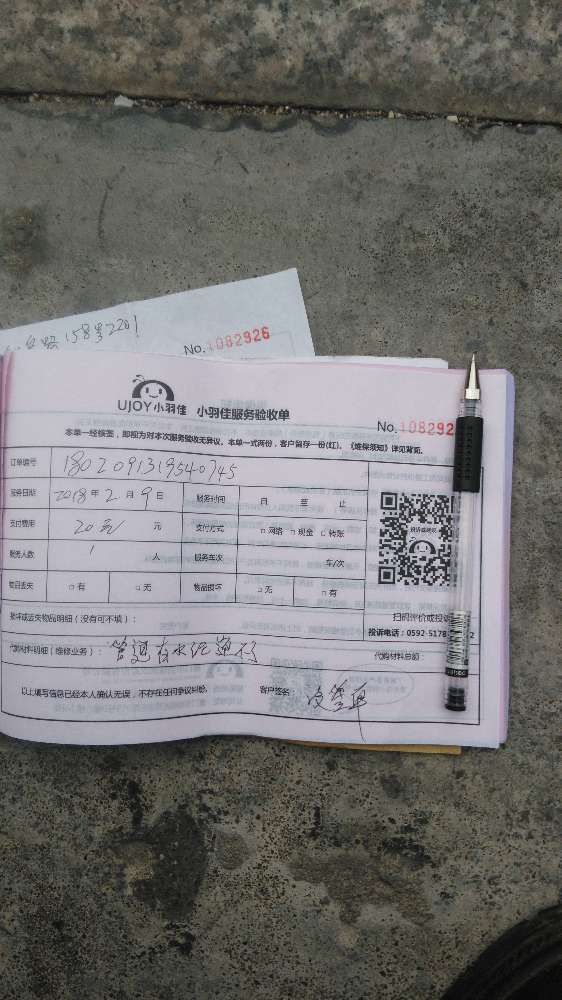 158号2201
No. 1082926
UJOY小羽佳 小羽佳服务验收单
No. 108292
本单一经核签，即视为对本次服务验收无异议。本单一式两份，客户留存一份(红)。《维保须知》详见背面。
订单编号 1802091319540745
服务日期 2018年2月9日 服务时间 自 至 止
支付费用 20元 元 支付方式 □网络 □现金 □转账
服务人数 1 人 服务车次 车/次
物品丢失 □有 □无 物品损坏 □无 □有
扫码评价或投诉
投诉电话：0592-5178 2
损坏或丢失物品明细（没有可不填）：
代购材料明细（维修业务）：管道有水泥 不 代购材料总额：
以上填写信息已经本人确认无误，不存在任何争议纠纷。 客户签名：